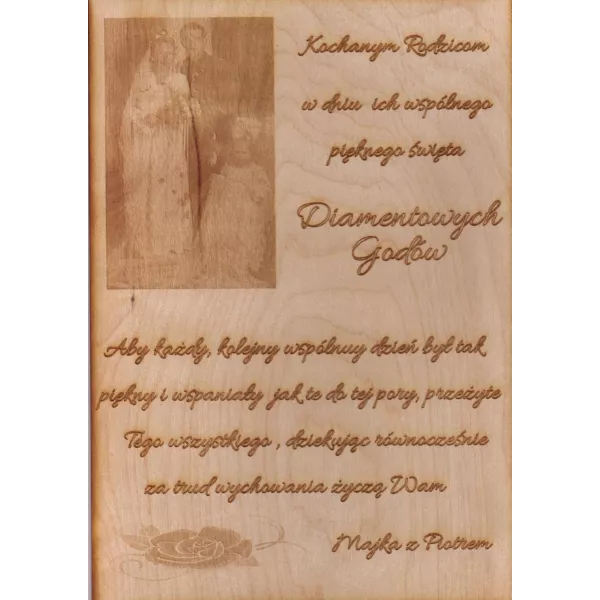 Kochanym Rodzicom
w dniu ich wspólnego
pięknego święta
Diamentowych
Godów
Aby każdy, kolejny wspólnuy dzień był tak
piękny i wspaniały jak te do tej pory, przeżyte
Tego wszystkiego , dziekując równocześnie
za trud wychowania życzą Wam
Majka z Piotrem